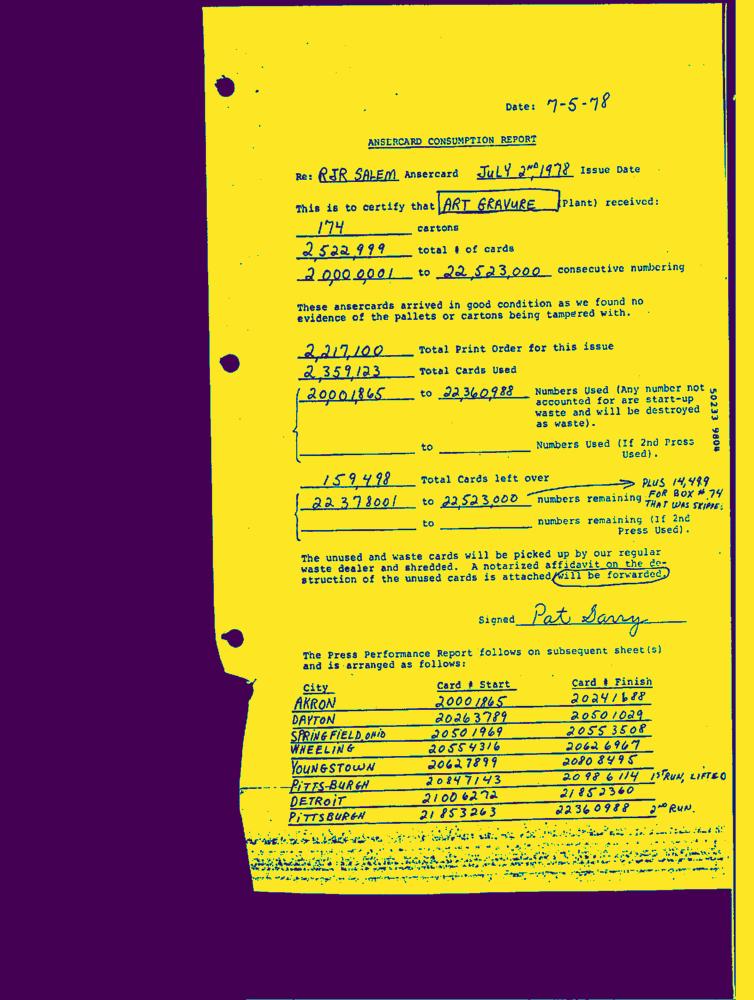 Date: 7-5-78
ANSERCARD CONSUMPTION REPORT
Re: RJR SALEM Ansercard JULY 2ND, 1978 Issue Date
This is to certify that ART GRAVURE (Plant) received:
174 cartons
2,522,999 total # of cards
20000001 to 22,523,000 consecutive numbering
These ansercards arrived in good condition as we found no
evidence of the pallets or cartons being tampered with.
2,217,100 Total Print Order for this issue
2,359,123 Total Cards Used
20001865 to 22360988 Numbers Used (Any number not
accounted for are start-up
waste and will be destroyed
as waste).
to Numbers Used (If 2nd Press
Used).
159,498 Total Cards left over
22378001 to 22,523,000 numbers remaining
PLUS 14,499
FOR BOX #74
THAT WAS SKIPPED
to numbers remaining (If 2nd
Press Used).
50233 9804
The unused and waste cards will be picked up by our regular
waste dealer and shredded. A notarized affidavit on the de-
struction of the unused cards is attached/will be forwarded.
Signed Pat Garry
The Press Performance Report follows on subsequent sheet(s)
and is arranged as follows:
City Card # Start Card # Finish
AKRON 20001865 20241688
DAYTON 20263789 20501029
SPRINGFIELD, OHIO 20501969 20553508
WHEELING 20554316 20626967
YOUNGSTOWN 20627899 20808495
PITTS-BURGH 20847143 20986114 1ST RUN, LIFTED
DETROIT 21006272 21852360
PITTSBURGH 21853263 22360988 2ND RUN.